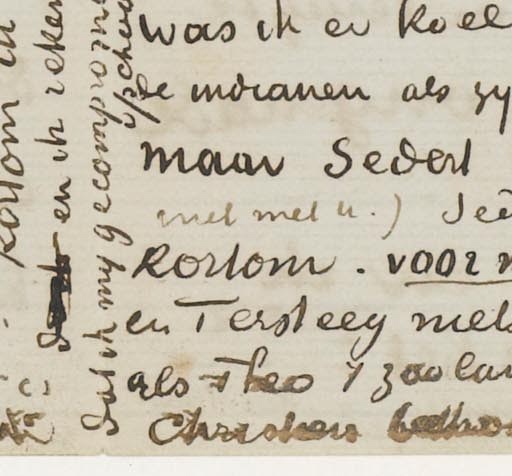 was ik er koel
de indianen als zy
maar Sedert
met met u.)
kortom. voor
en Tersteeg niets
als Theo 7 zoolan
Christien
kortom
en ik reken
Dat ik my gecomprom